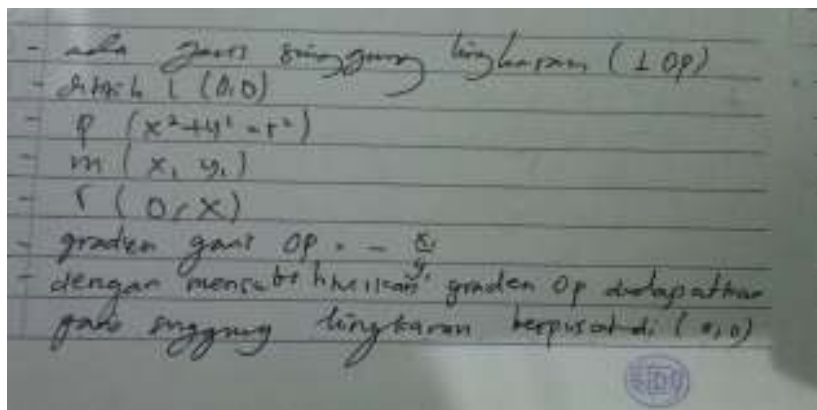 - ada garis singgung lingkaran (⊥ OP)
- titik L (0,0)
- P (x²+y² = r²)
- m (x, y₁)
- r (0, x)
- graden garis OP = - x₁/y₁
- dengan mensubtitusikan graden Op didapatkan
garis singgung lingkaran berpusat di (0,0)